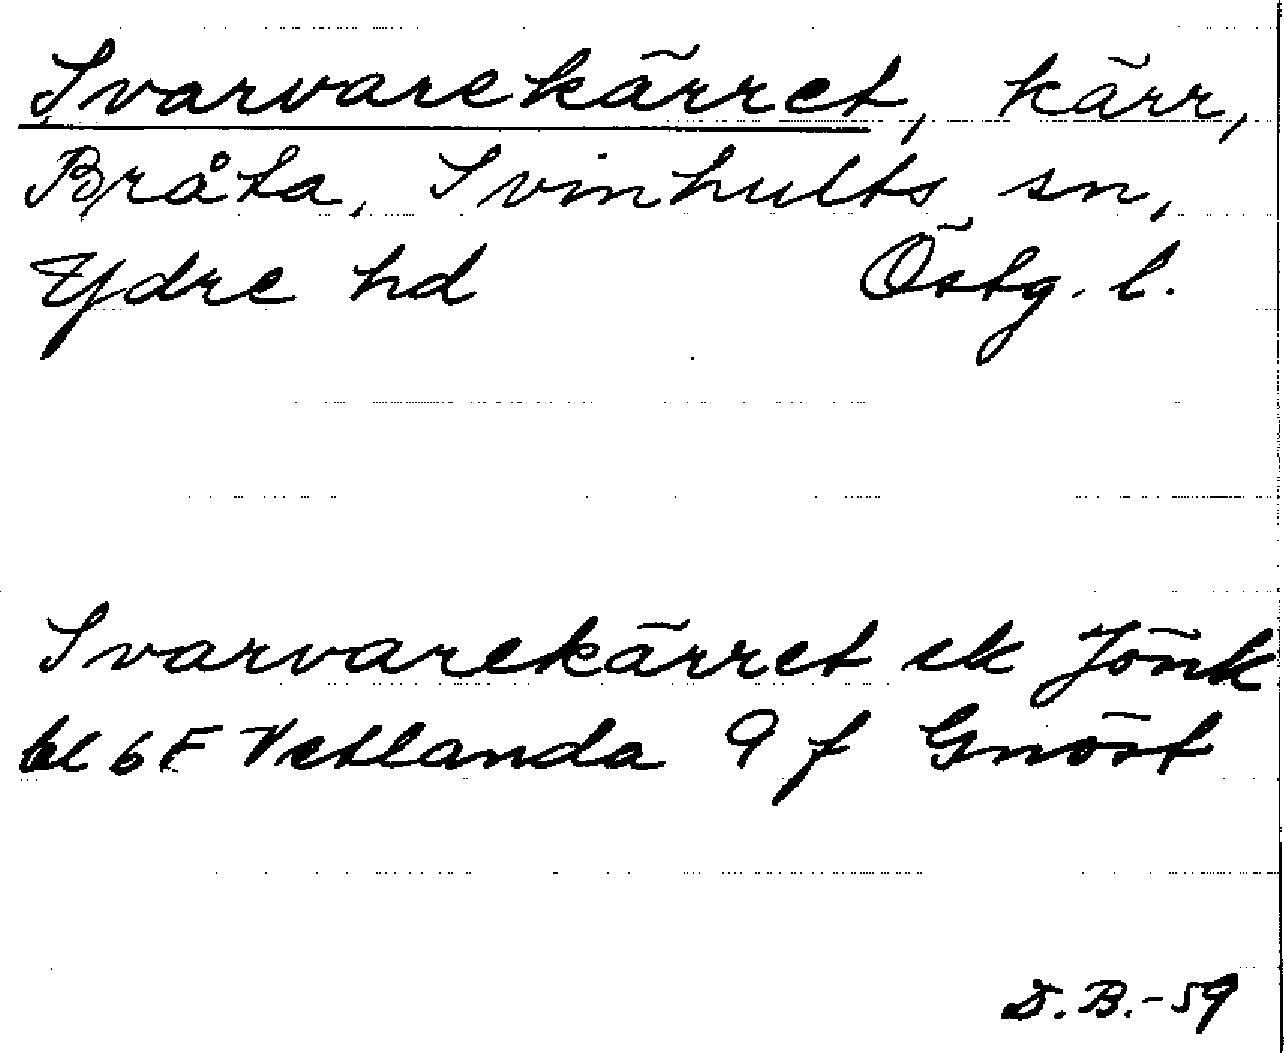 Svarvarekärret, kärr,
Bråta, Svinhults sn,
Ydre hd Östg. l.
Svarvarekärret ek Jönk
bl 6F Vetlanda 9 f Gnöst
D.B.-59